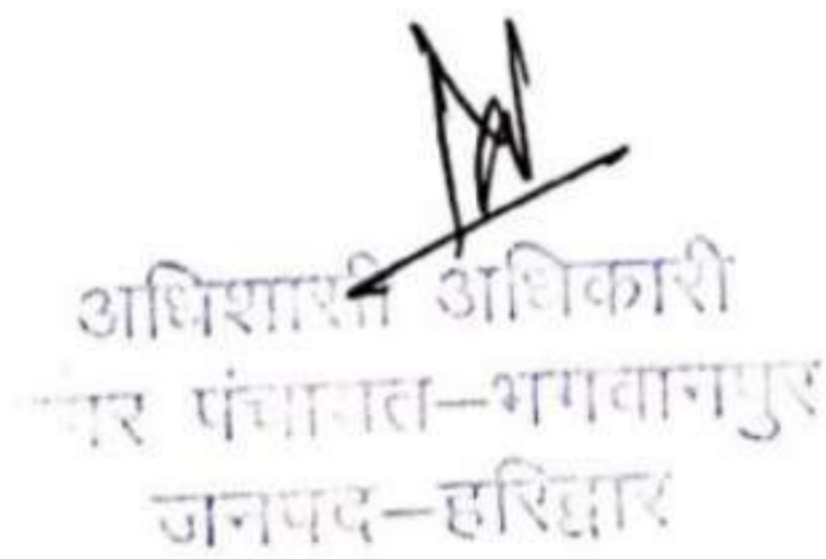 अधिशासी अधिकारी
नगर पंचायत-भगवानपुर
जनपद-हरिद्वार